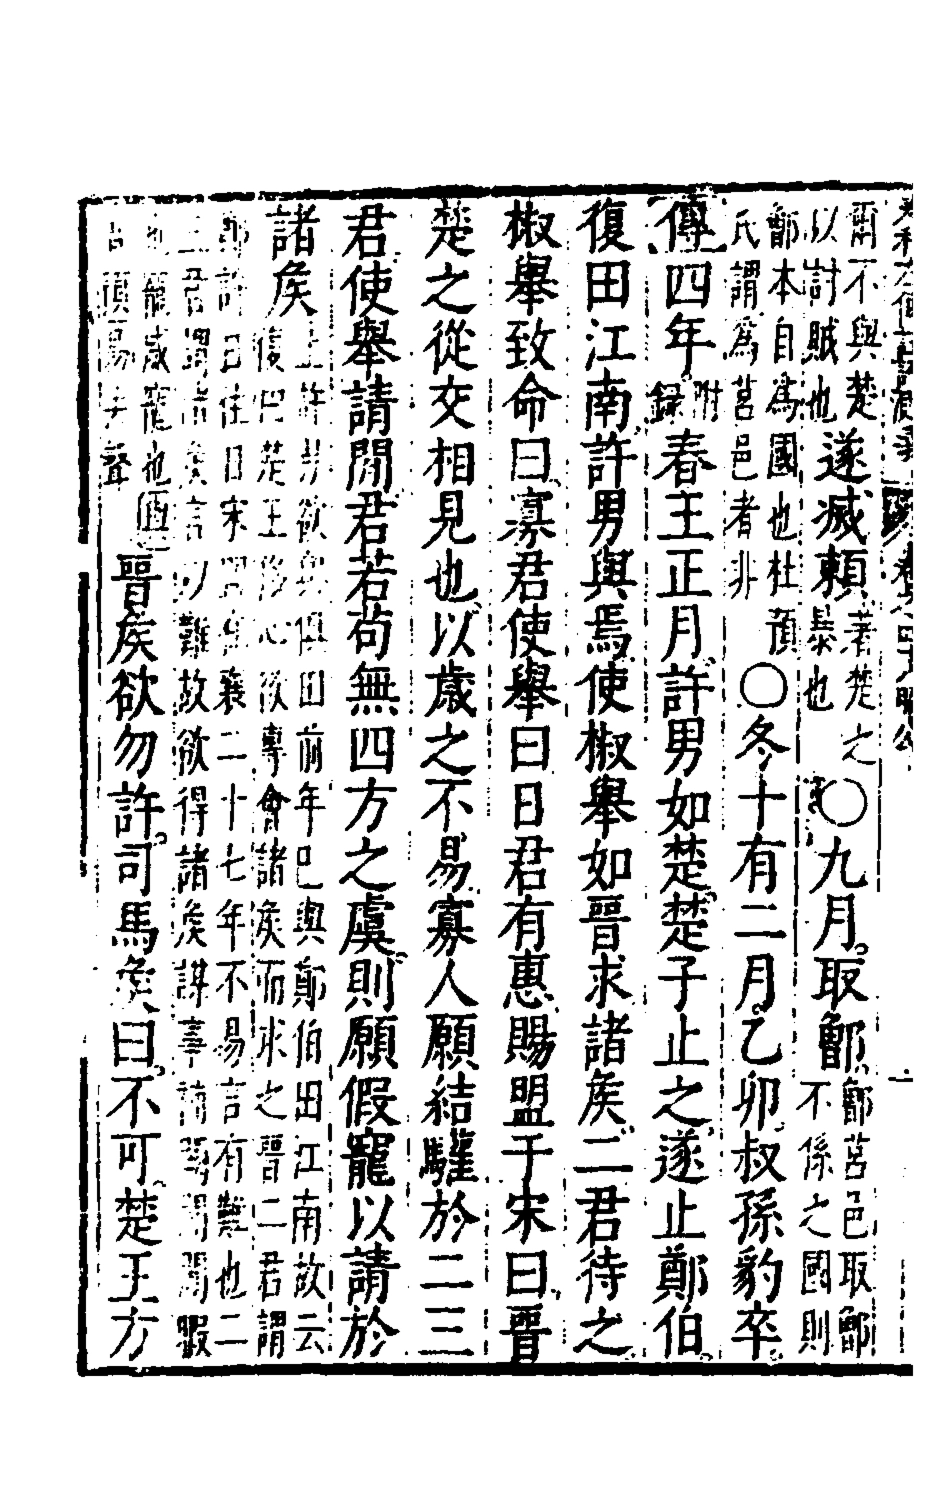 爾不與楚以討賊也遂滅賴著楚之暴也○九月取鄫鄫莒邑取鄫不係之國則
鄫本自為國也杜預氏謂為莒邑者非○冬十有二月乙卯叔孫豹卒
傳四年附錄春王正月許男如楚楚子止之遂止鄭伯
復田江南許男與焉使椒舉如晉求諸侯二君待之
椒舉致命曰寡君使舉曰日君有惠賜盟于宋曰晉
楚之從交相見也以歲之不易寡人願結驩於二三
君使舉請閒君若苟無四方之虞則願假寵以請於
諸侯止許男欲與俱田前年已與鄭伯田江南故云復田楚王侈心欲專會諸侯而求之晉二君謂
鄭許日往日宋盟在襄二十七年不易言有難也二三君謂諸侯言以難故欲得諸侯謀事請閒閒閒暇
也寵威寵也易去聲晉侯欲勿許司馬侯曰不可楚王方